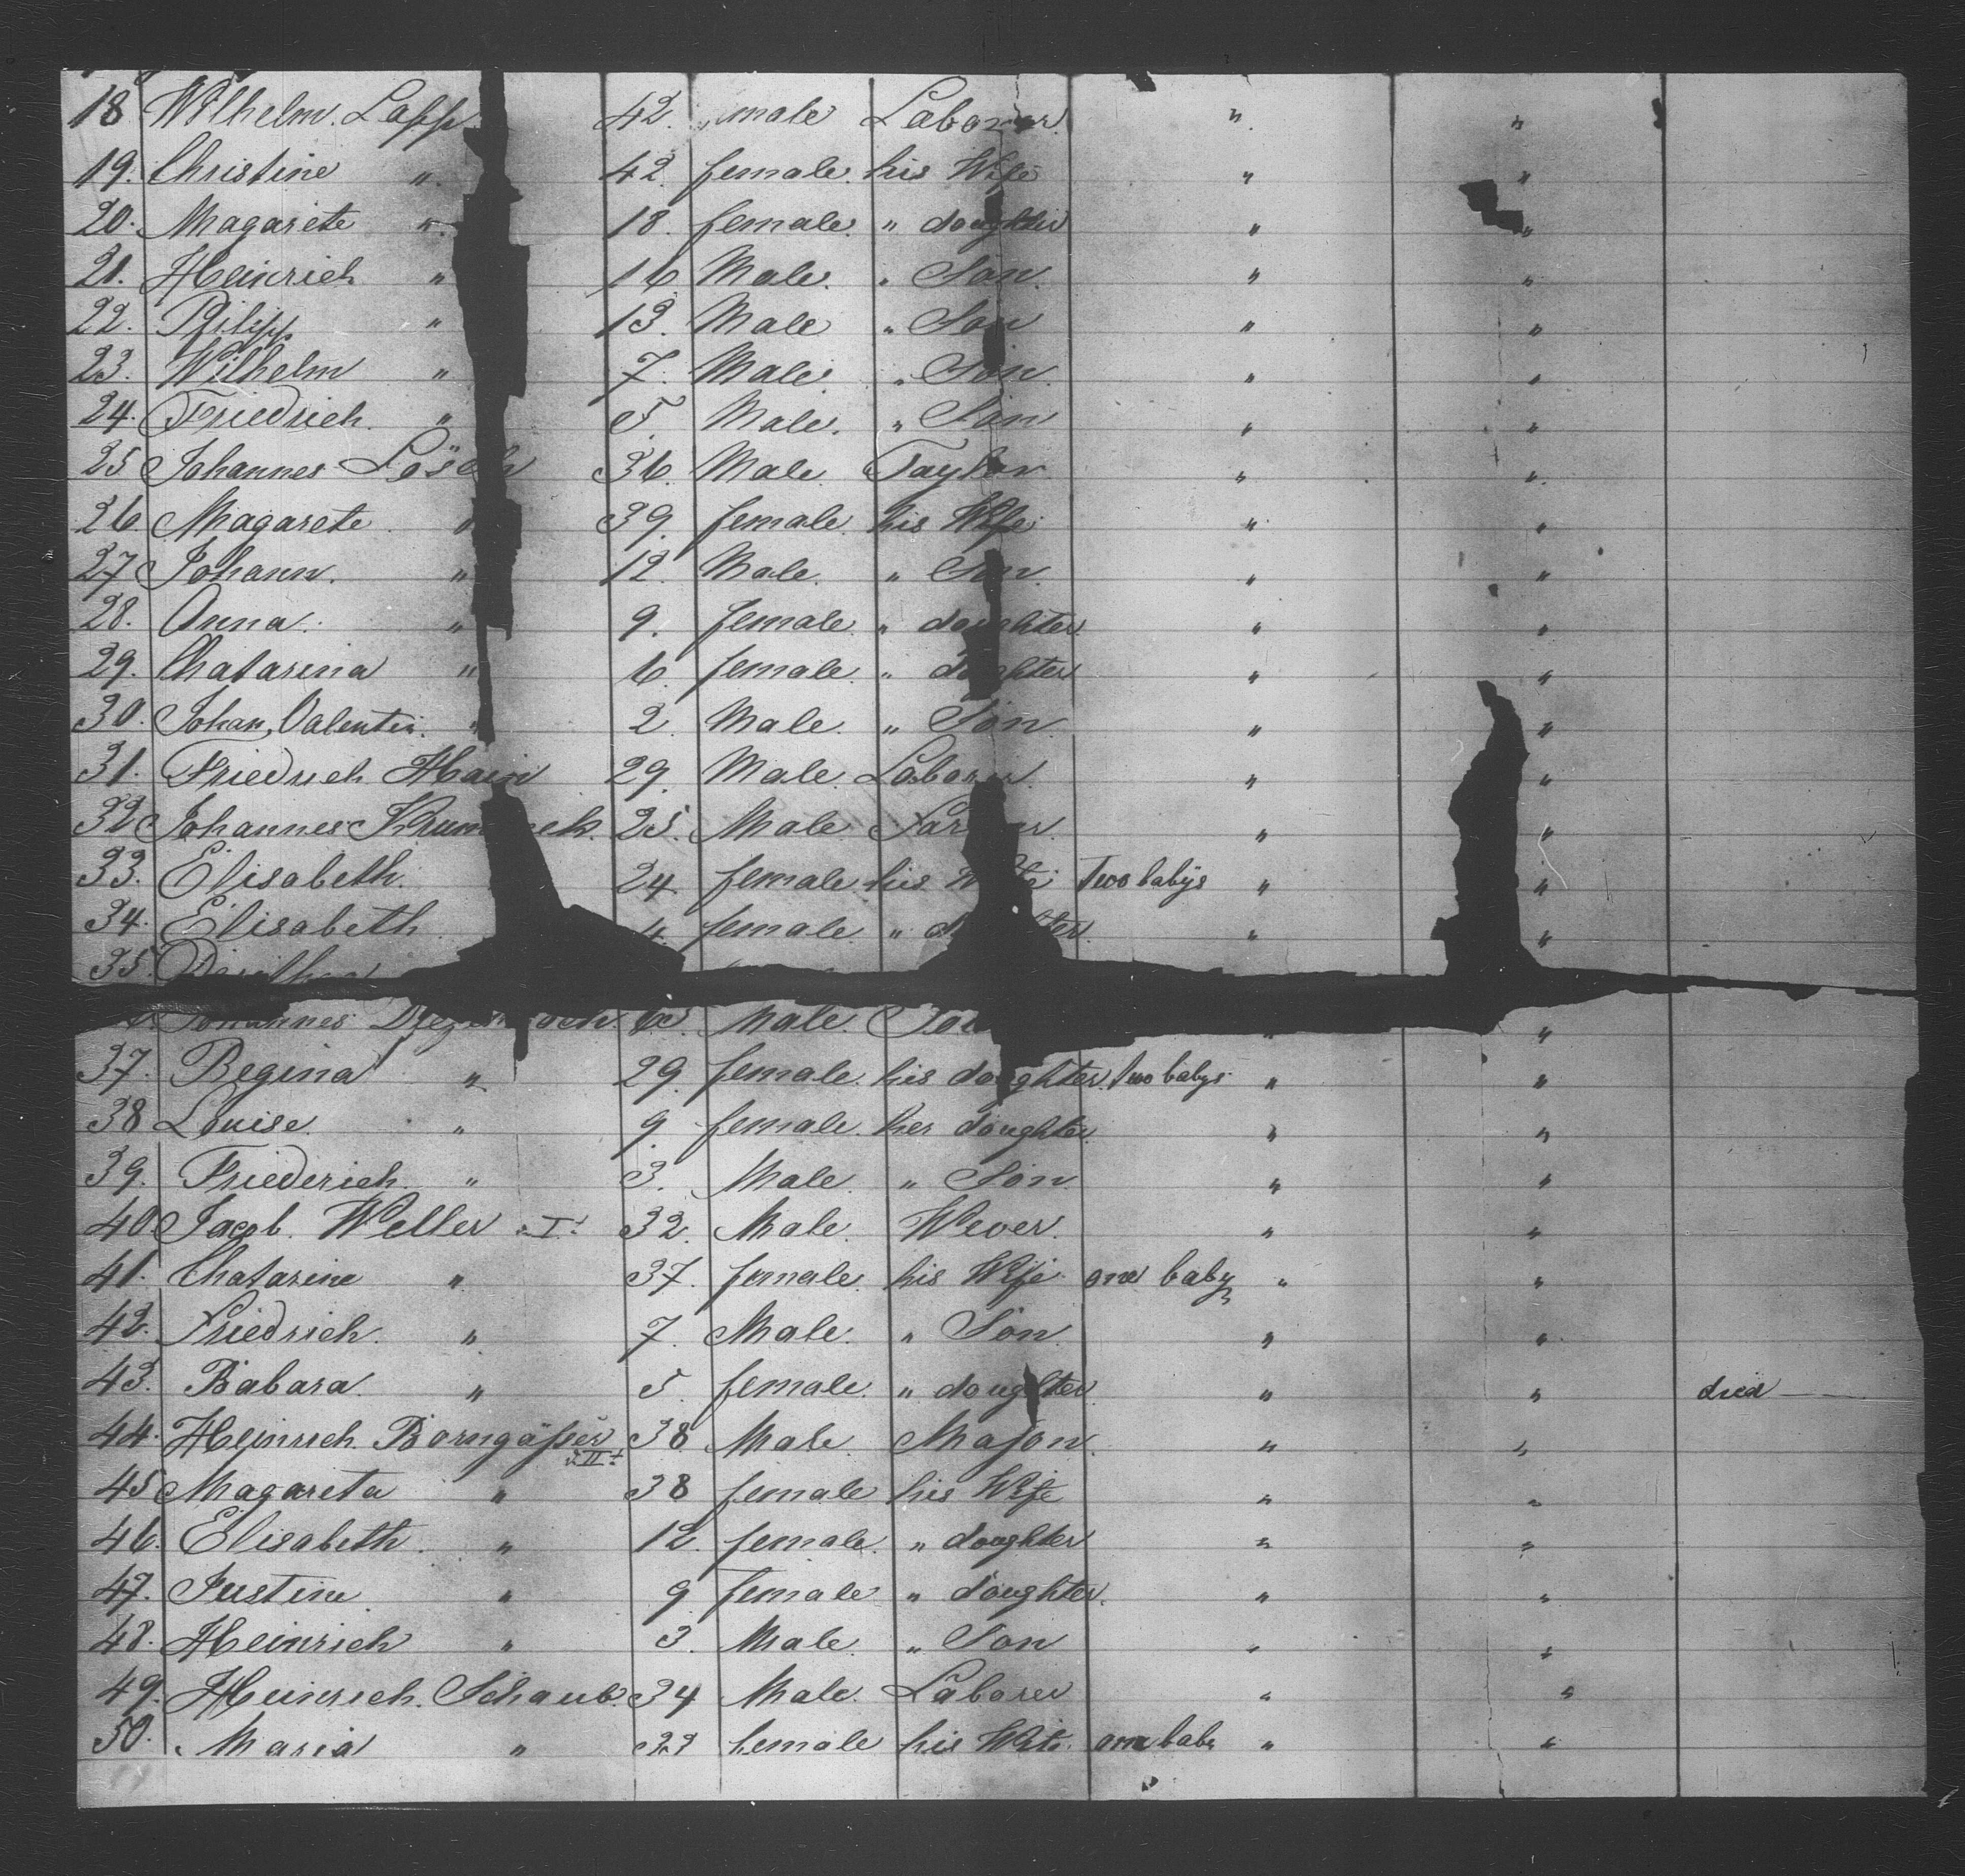 18 Wilhelm. Lapp 42. male Laborer. " "
19. Christine " 42. female. his Wife " "
20. Magarete " 18. female. " doughter " "
21. Heinrich " 16 Male. " Son. " "
22. Philipp " 13. Male " Son " "
23. Wilhelm " 7. Male. " Son. " "
24. Friedrich. " 5. Male. " Son " "
25 Johannes Lösch 36. Male. Taylor. " "
26 Magarete " 39. female. his Wife " "
27 Johann. " 12. Male. " Son. " "
28. Anna. " 9. female. " doughter. " "
29. Chatarina " 6. female. " doughter " "
30. Johan, Valentin. " 2. Male. " Son. " "
31. Friedrich Hain 29. Male. Laborer. " "
32 Johannes 25. Male Farmer. " "
33. Elisabeth. 24. female his Wife Two babys " "
34. Elisabeth 4. female. " doughter. " "
35.
Johannes Male. "
37. Regina " 29. female. his doughter. two babys " "
38 Louise. " 9. female. her doughter " "
39. Friederich. " 3. Male. " Son. " "
40. Jacob. Weller I. 32. Male. Wever. " "
41. Chatarine " 37. female. his Wife one baby " "
42. Friedrich. " 7. Male. " Son. " "
43. Babara. " 5. female. " doughter. " " died
44. Heinrich. Borngäßer II. 38 Male. Mason. " "
45 Magareta " 38 female his Wife " "
46. Elisabeth. " 12. female. " doughter " "
47. Justine " 9 female " doughter. " "
48. Heinrich " 3. Male. " Son " "
49. Heinrich. Schaub. 34 Male. Laborer " "
50. Maria " female his Wife. one baby " "